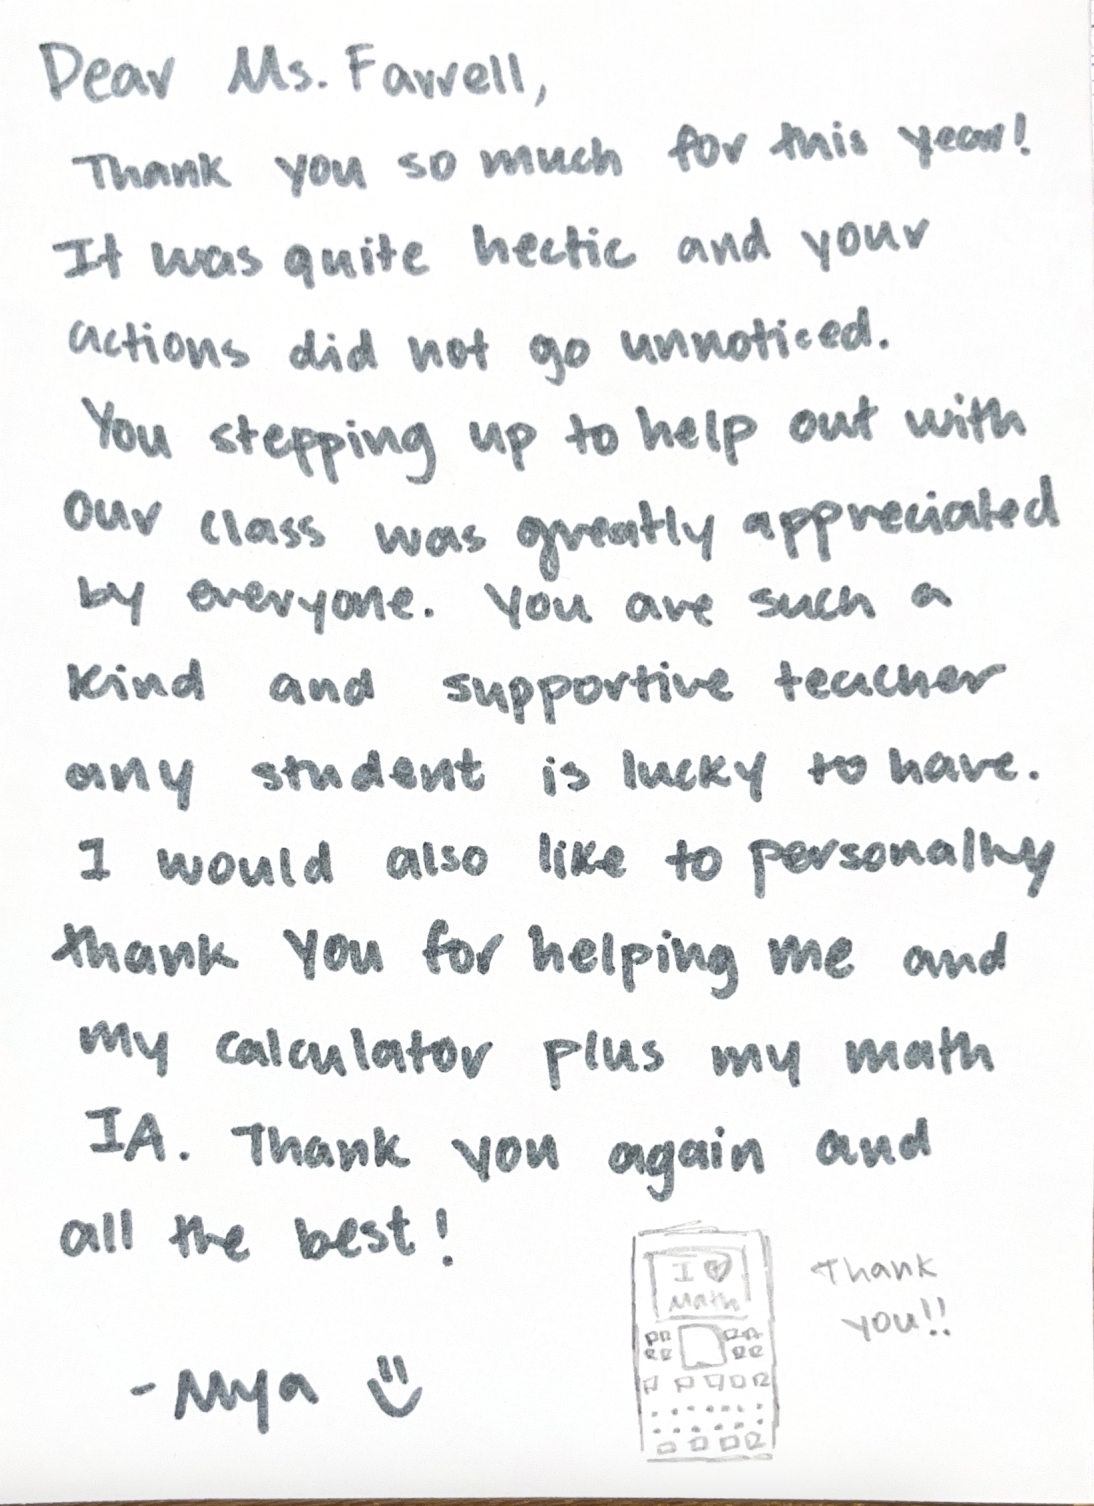 Dear Ms. Farrell,
Thank you so much for this year!
It was quite hectic and your
actions did not go unnoticed.
You stepping up to help out with
our class was greatly appreciated
by everyone. You are such a
kind and supportive teacher
any student is lucky to have.
I would also like to personally
thank you for helping me and
my calculator plus my math
IA. Thank you again and
all the best!
I ♥
Math
Thank
you!!
- Mya